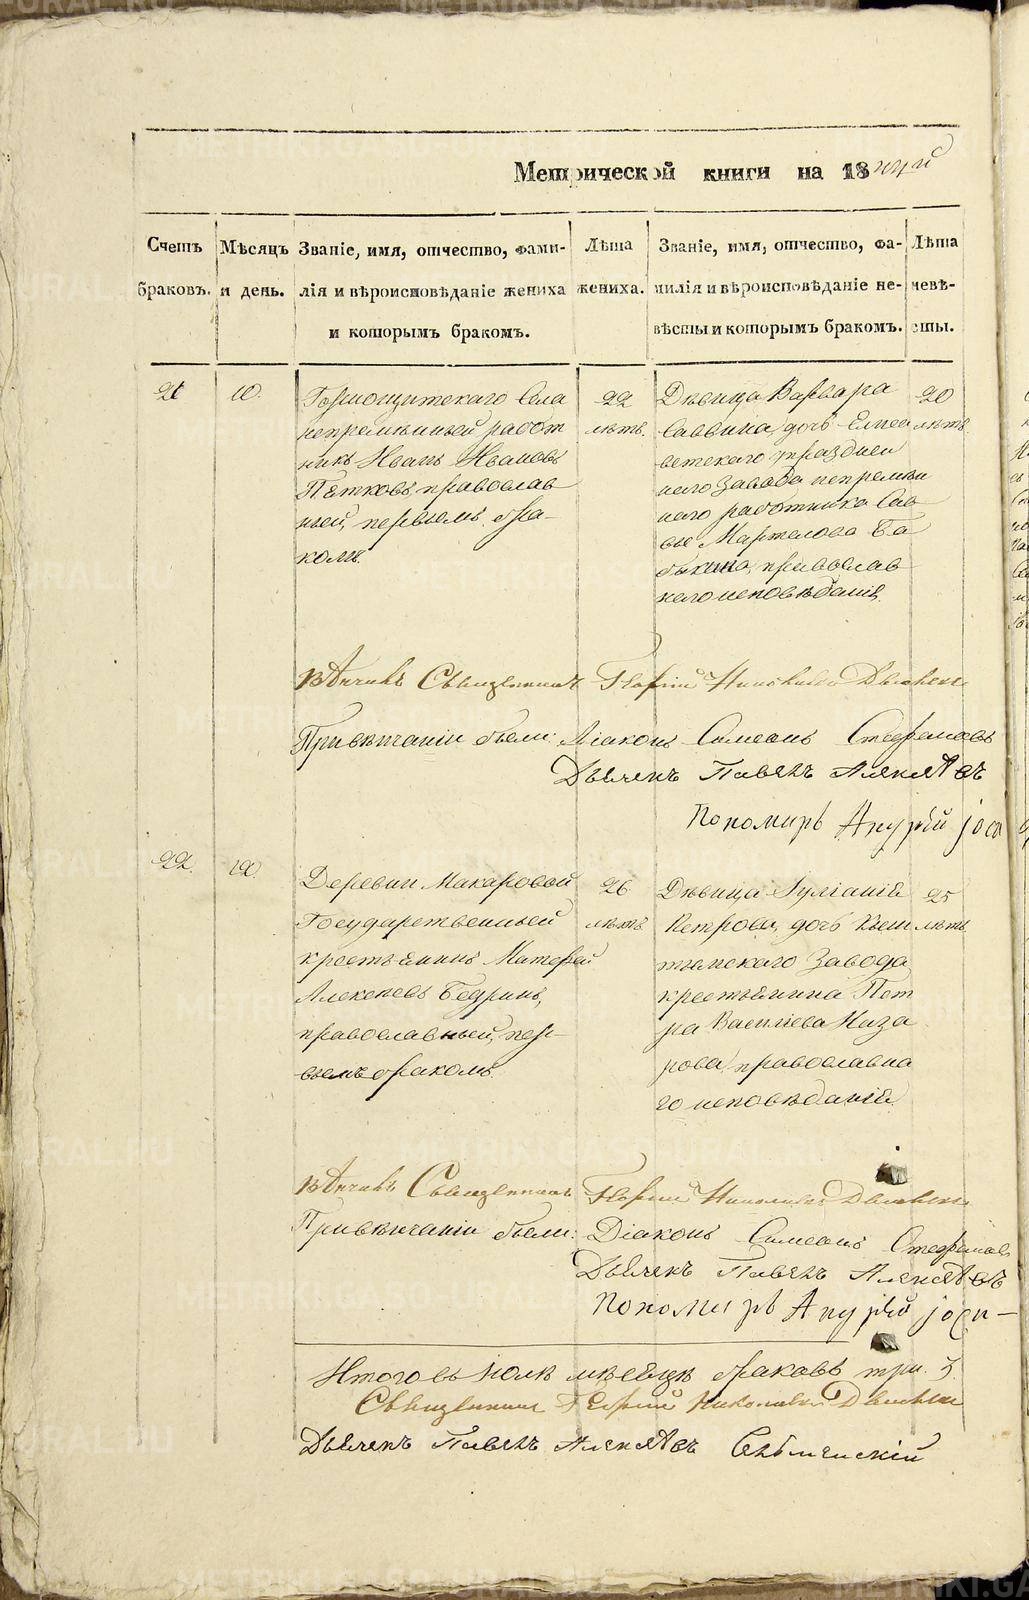 Метрической книги на 18
Счетъ браковъ.
Мѣсяцъ и день.
Званіе, имя, отчество, фамилія и вѣроисповѣданіе жениха и которымъ бракомъ.
Лѣта жениха.
Званіе, имя, отчество, фамилія и вѣроисповѣданіе невѣсты и которымъ бракомъ.
Лѣта невѣсты.
21
10.
Горнощитскаго Села
непремѣнный работ
никъ Иванъ Ивановъ
Пѣтковъ, православ
ный, первымъ бра-
комъ.
22
лѣтъ.
Дѣвица Варвара
Саввина, дочь Елиса
ветскаго упразднен
наго Завода непремѣн
наго работника Сав
вы Мартелова Ба
бы​кина, православ
наго исповѣданія.
20
лѣтъ.
Вѣнчалъ Священникъ Георгій Николаевъ
При вѣнчаніи были: Діаконъ Симеонъ Стефановъ
Дьячекъ Павелъ Алексѣевъ
Пономарь
22.
Деревни Макаровой
Государственный
крестьянинъ Матфей
Алексѣевъ Бедринъ,
православный, пер-
вымъ бракомъ.
26
лѣтъ
Дѣвица Іуліанія
Петрова, дочь Кыш
тымскаго Завода
крестьянина Пет
ра Василіева Наза
рова, православна
го исповѣданія.
25
лѣтъ
Вѣнчалъ Священникъ Георгій Николаевъ
При вѣнчаніи были: Діаконъ Симеонъ Стефановъ
Дьячекъ Павелъ Алексѣевъ
Пономарь
Итого въ Іюлѣ мѣсяцѣ браковъ три. 3.
Священникъ Георгій Николаевъ
Дьячекъ Павелъ Алексѣевъ
METRIKI.GASO-URAL.RU